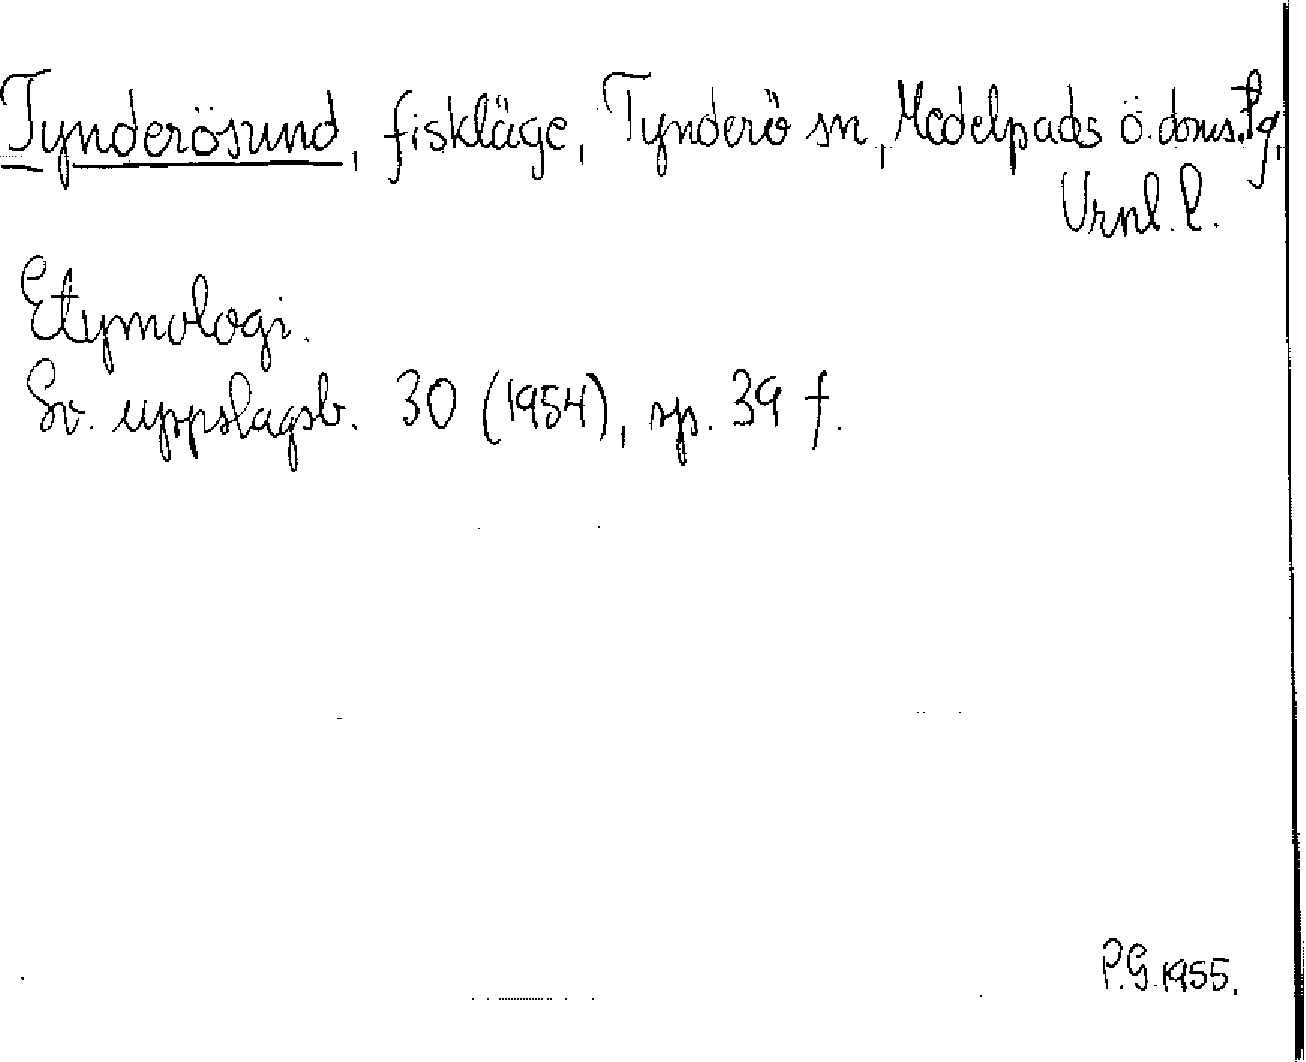 Tynderösund, fiskläge, Tynderö sn, Medelpads ö. doms.tg,
Vrnl. l.
Etymologi.
Sv. uppslagsb. 30 (1954), sp. 39 f.
P.G. 1955.